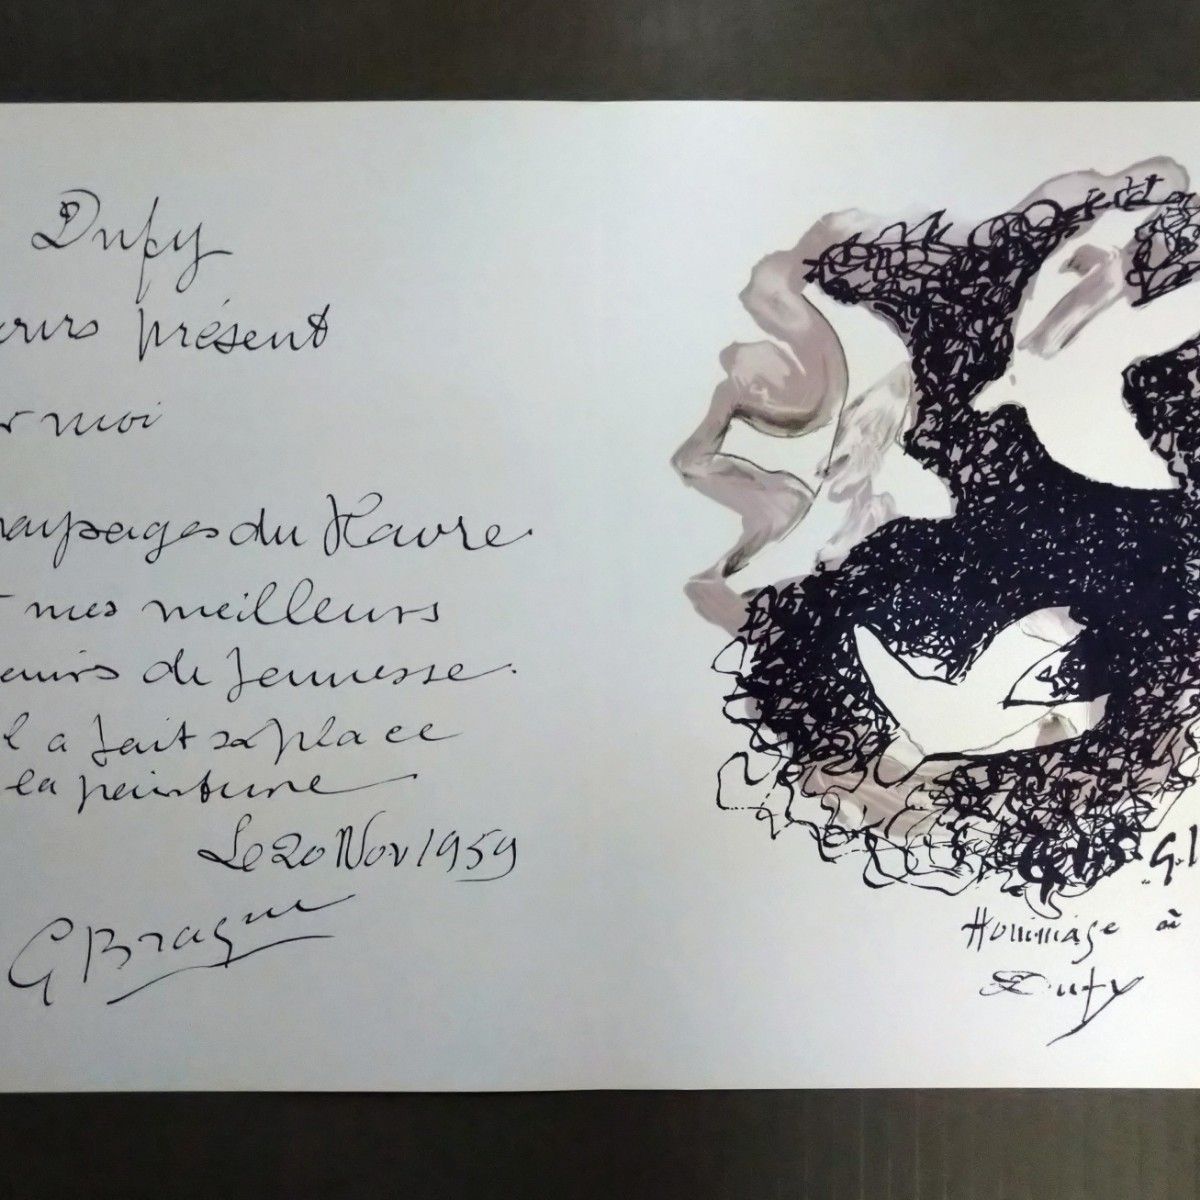 Dufy
présent
moi
paysages du Havre.
mes meilleurs
de Jeunesse.
a fait sa place
la peinture
Le 20 Nov 1959
G Braque
G.
Hommage à
Dufy